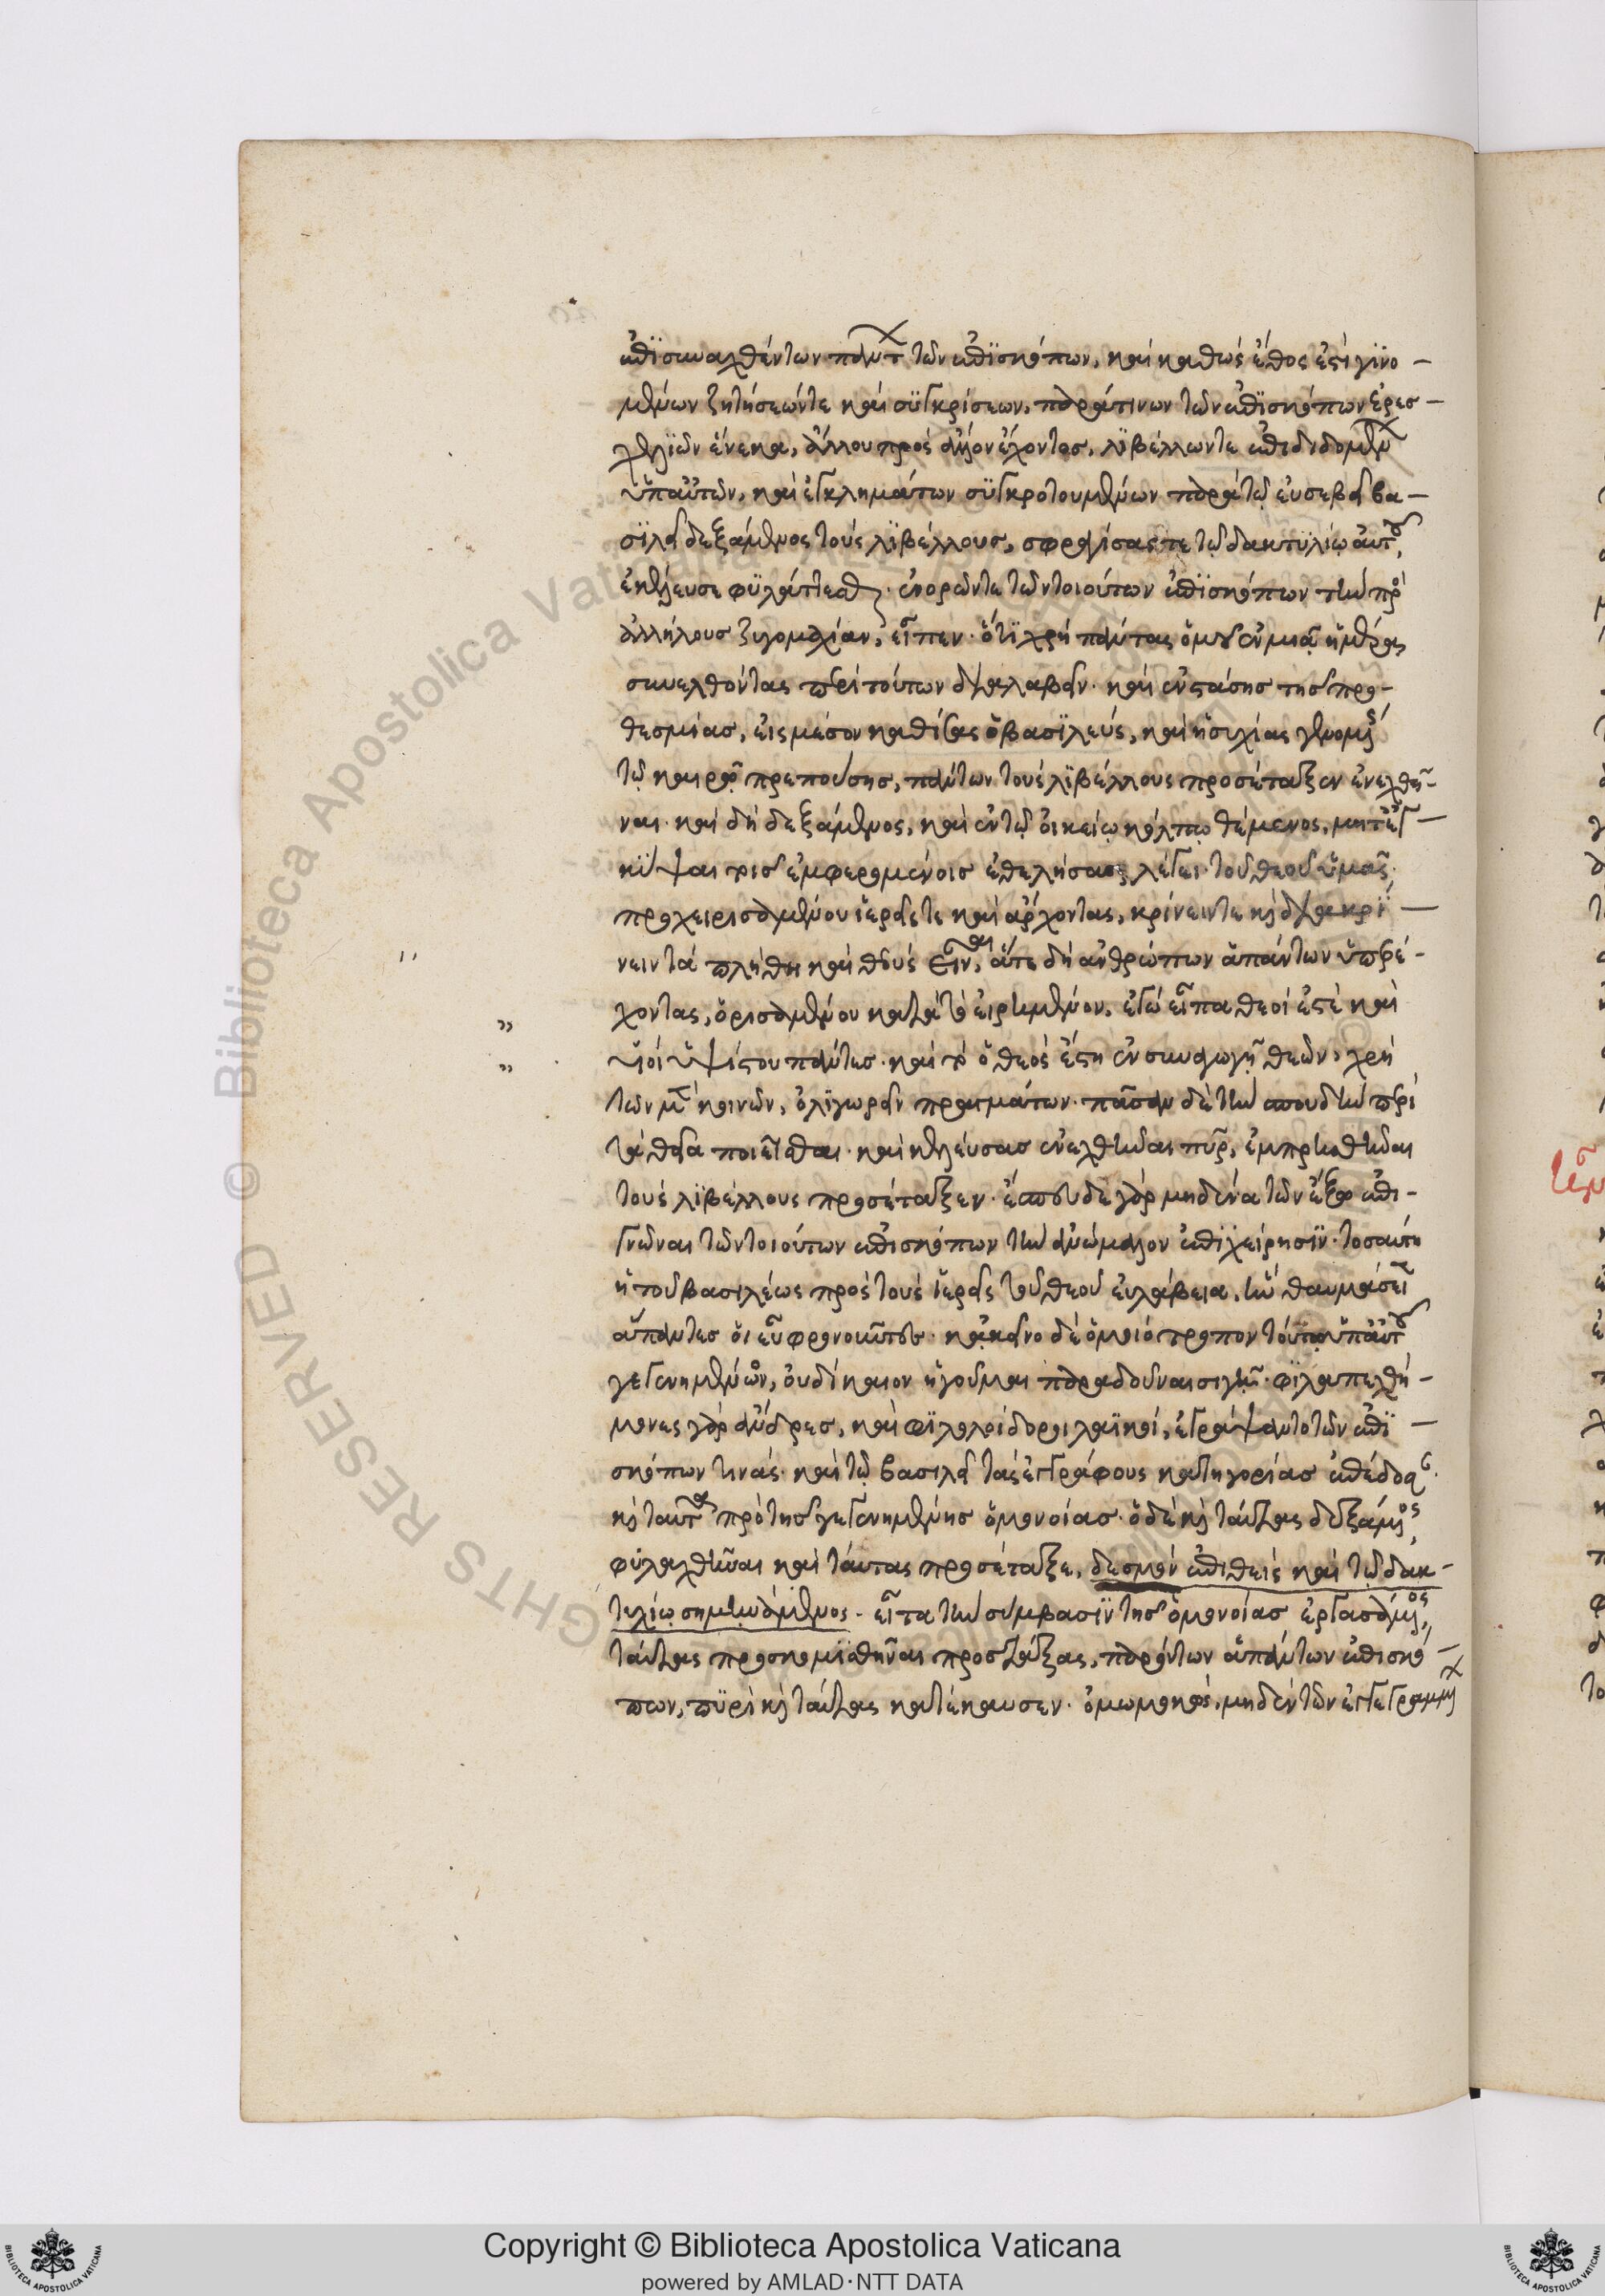 ἐπισυναχθέντων πάντων τῶν ἐπϊσκόπων, καὶ καθὼς ἔθος ἐστὶ γϊνο-
μένων ζητήσεών τε καὶ συγκρίσεων, παρά τινων τῶν ἐπϊσκόπων ἐρεσ-
χελϊῶν ἕνεκα, ἄλλου πρὸς ἄλλον ἔχοντος, λϊβέλλων τε ἐπιδιδομένων
ὑπ αὐτῶν, καὶ ἐγκλημάτων συγκροτουμένων παρὰ τῷ εὐσεβεῖ βα-
σϊλεῖ δεξάμενος τοὺς λϊβέλλους, σφραγίσας τε τῷ δακτυλίῳ αὐτοῦ,
ἐκέλευσε φυλάττεσθαι. ἐνορῶν τε τῶν τοιούτων ἐπϊσκόπων τὴν πρὸς
ἀλλήλους ζυγομαχίαν, εἶπεν. ὅτϊ χρὴ πάντας ὁμοῦ ἐν μιᾷ ἡμέρᾳ
συνελθόντας περὶ τούτων διαλαβεῖν. καὶ ἐνστάσης τῆς προ-
θεσμίας, εἰς μέσον καθίσας ὁ βασϊλεύς, καὶ ἡσυχίας γενομένης
τῷ καιρῷ πρεπούσης, πάντων τοὺς λϊβέλλους προσέταξεν ἐνεχθῆ-
ναι. καὶ δὴ δεξάμενος, καὶ ἐν τῷ οἰκείῳ κόλπῳ θέμενος, μήτ ἐγ-
κύψαι τοῖς ἐμφερομένοις ἐθελήσας λέγει. τοῦ θεοῦ ὑμᾶς
προχειρισαμένου ἱερεῖς τε καὶ ἄρχοντας, κρίνειν τε καὶ διακρί-
νειν τὰ πλήθη καὶ θεοὺς εἶναι, ἅτε δὴ ἀνθρώπων ἁπάντων ὑπερέ-
χοντας, ὁρισαμένου κατὰ τὸ εἰρημένον, ἐγὼ εἶπα θεοί ἐστε καὶ
υἱοὶ ὑψίστου πάντες. καὶ τὸ ὁ θεὸς ἔστη ἐν συναγωγῇ θεῶν, χρὴ
τῶν μὲν κοινῶν, ὀλϊγωρεῖν πραγμάτων. πᾶσαν δὲ τὴν σπουδὴν περὶ
τὰ θεῖα ποιεῖσθαι. καὶ κελεύσας ἐνεχθῆναι πῦρ, ἐμπρησθῆναι
τοὺς λϊβέλλους προσέταξεν. ἔσπευδε γὰρ μηδένα τῶν ἔξω ἐπι-
γνῶναι τῶν τοιούτων ἐπισκόπων τὴν ἀνώμαλον ἐπϊχείρησϊν. τοσαύτη
ἡ τοῦ βασιλέως πρὸς τοὺς ἱερεῖς τοῦ θεοῦ εὐλάβεια, ἣν θαυμάσειαν
ἅπαντες οἱ εὖ φρονοῦντες. κἀκεῖνο δὲ ὁμοιότροπον τούτῳ ὑπ αὐτοῦ
γεγενημένον, οὐ δίκαιον ἡγοῦμαι παραδοῦναι σιγῇ. φϊλαπεχθή-
μονες γὰρ ἄνδρες, καὶ φϊλολοίδοροι λαϊκοί, ἐγράψαντο τῶν ἐπϊ-
σκόπων τινάς. καὶ τῷ βασιλεῖ τὰς ἐγγράφους κατηγορίας ἐπέδοσαν.
καὶ ταῦτα πρὸ τῆς γεγενημένης ὁμονοίας. ὁ δὲ καὶ ταύτας δεξάμενος,
φυλαχθῆναι καὶ ταύτας προσέταξε, δεσμὸν ἐπιθεὶς καὶ τῷ δακ-
τυλίῳ σημηνάμενος. εἶτα τὴν σύμβασϊν τῆς ὁμονοίας ἐργασάμενος,
ταύτας προσκομισθῆναι προστάξας, παρόντων ἁπάντων ἐπισκό-
πων, πυρὶ καὶ ταύτας κατέκαυσεν. ὀμωμοκώς, μηδὲν τῶν ἐγγεγραμμένων